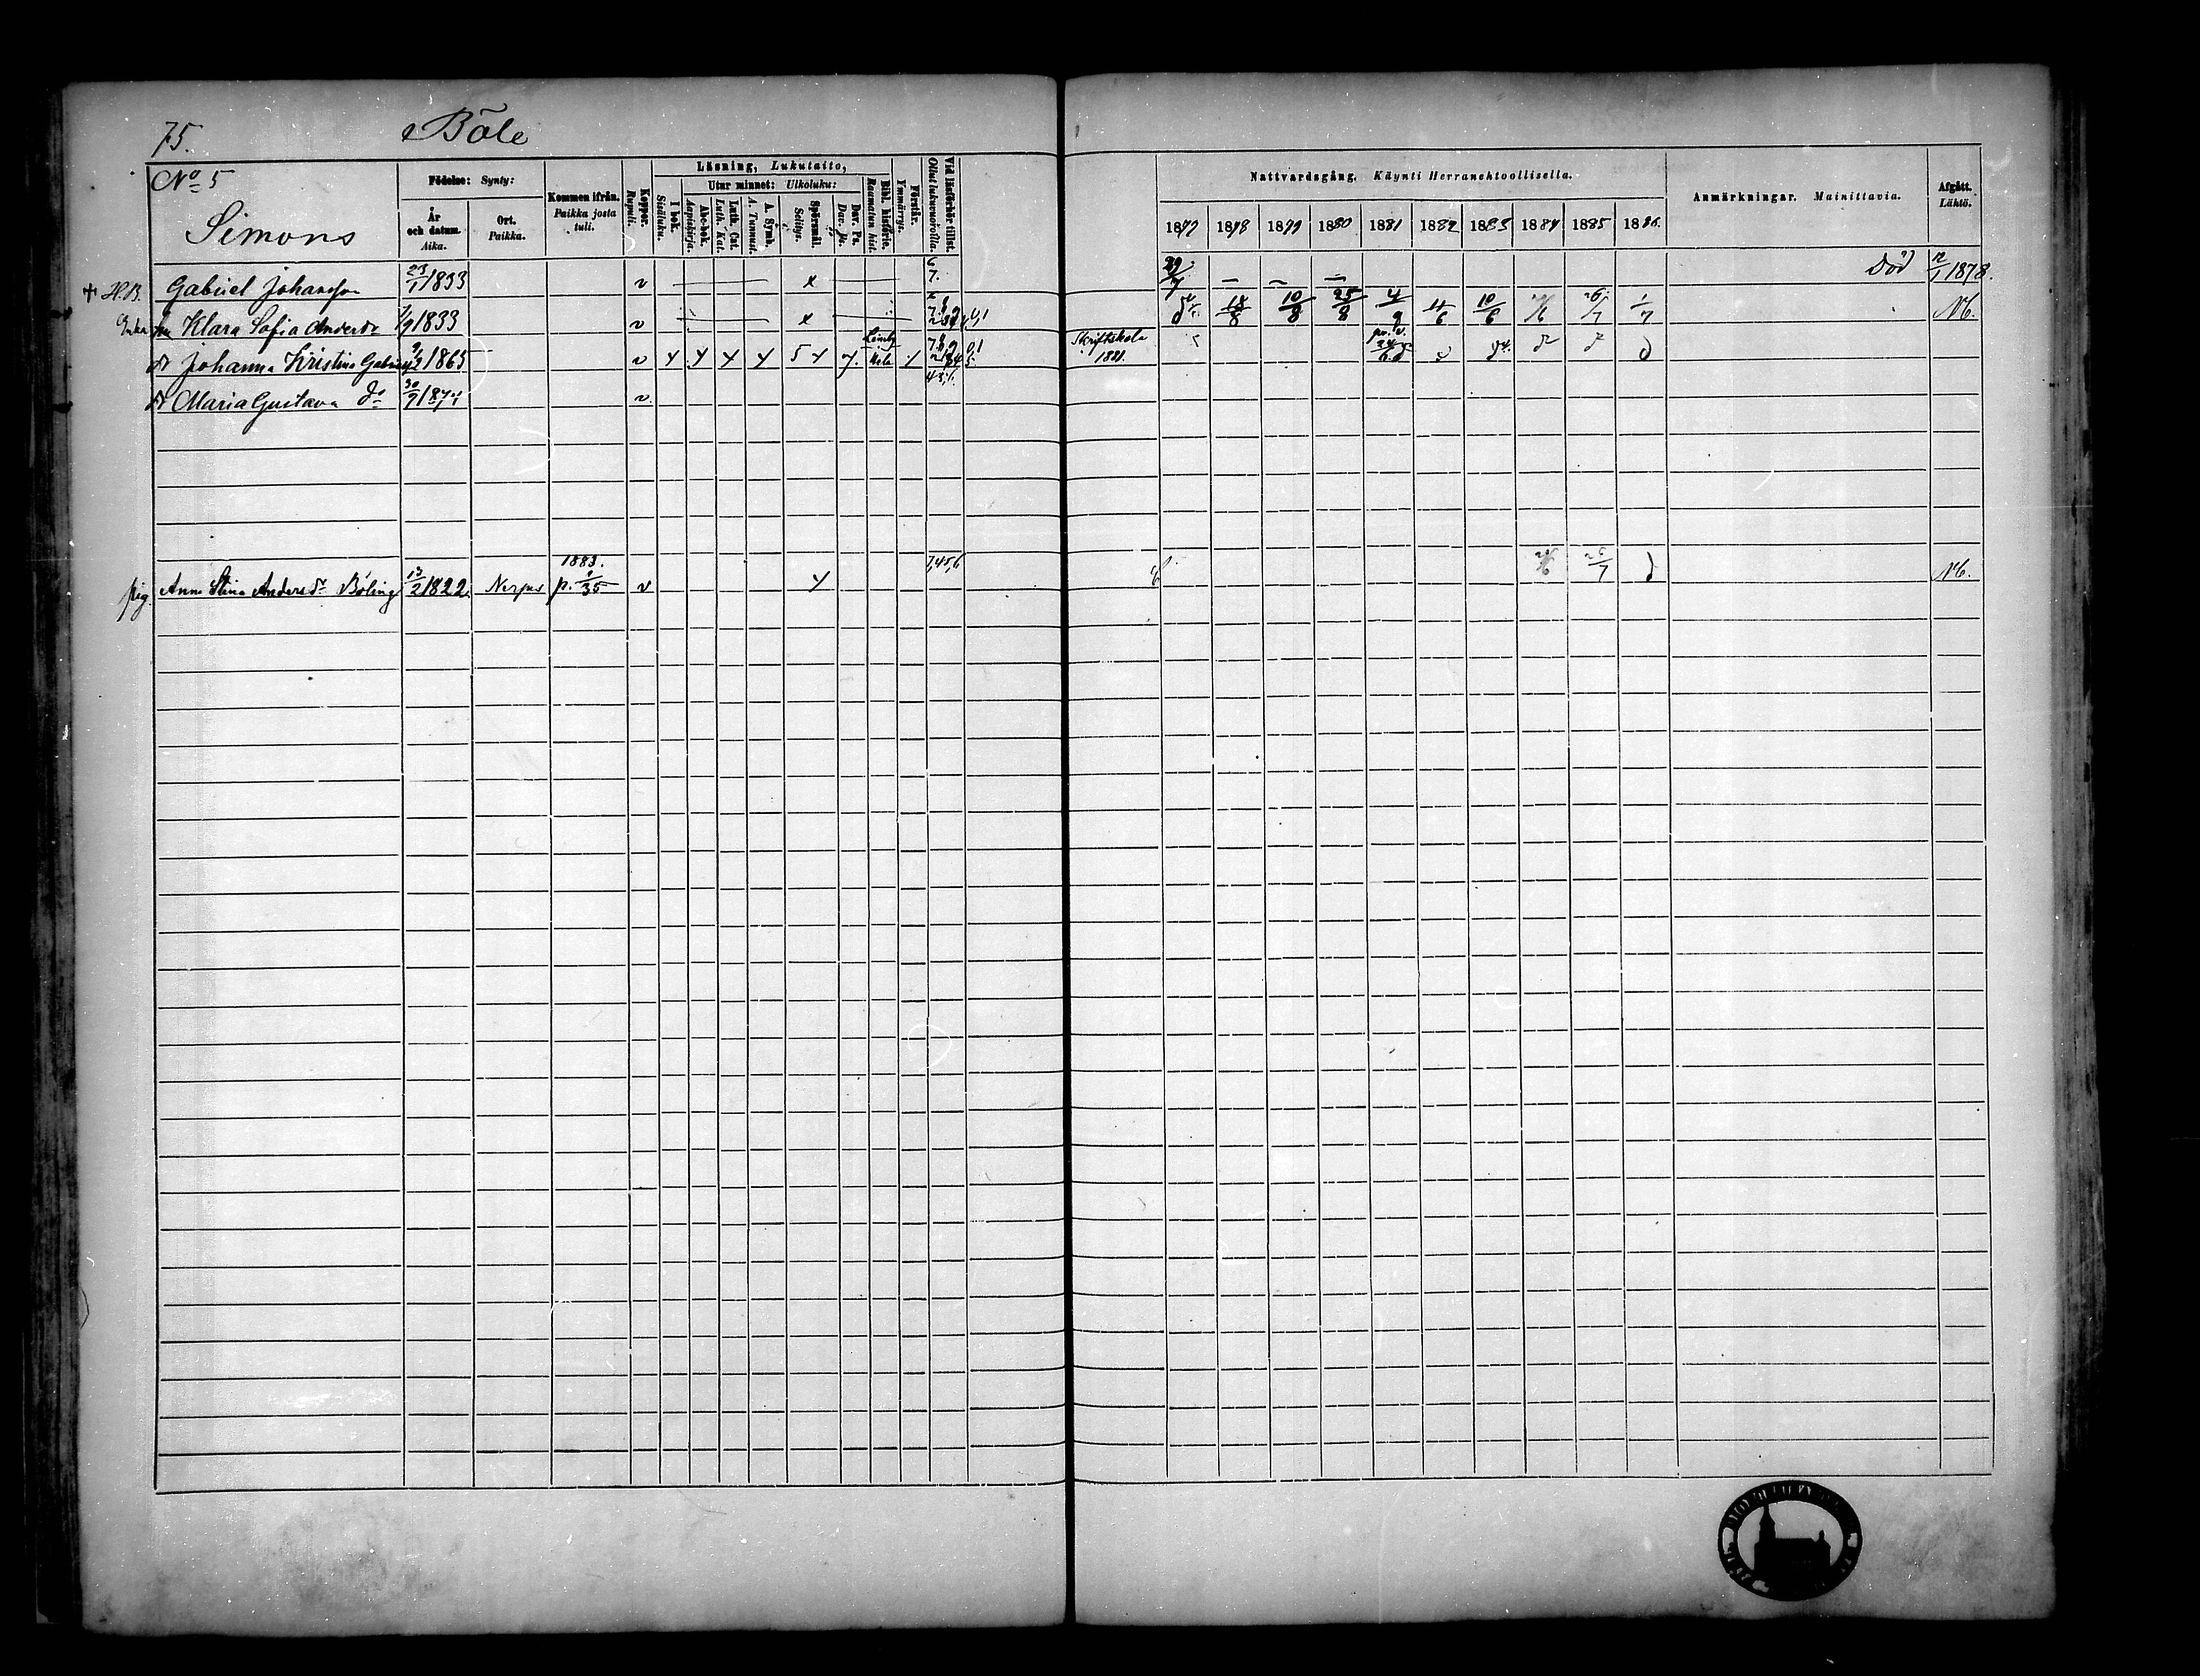 75. Böle
No 5
Simons
Födelse: Synty:
År och datum. Aika.
Ort. Paikka.
Kommen ifrån. Paikka josta tuli.
Koppor. Rupuli.
Läsning, Lukutaito,
I bok. Sisäluku.
Utur minnet: Ulkoluku:
Abc-bok. Aapiskirja.
Luth. Cat. Luth. Kat.
A. Symb. A. Tunnust.
Spörsmål. Selitys.
Dav. Ps. Dav. Ps.
Bibl. historie. Raamatun hist.
Förstår. Ymmärrys.
Vid läsförhör tillst. Ollut lukuvuorolla.
Nattvardsgång. Käynti Herranehtoollisella.
1877 1878 1879 1880 1881 1882 1883 1884 1885 1886.
Anmärkningar. Mainittavia.
Afgått. Lähtö.
H.B. Gabriel Johansson 23/1 1833 v x 6 7. 29/7 — — — Död 12/1 1878.
Enka Klara Sofia Andersdr 1/9 1833 v x 18/8 10/8 25/8 4/9 11/6 10/6 26/7 1/7 N6.
dr Johanna Kristina 1865 v Skriftskola 1881. 24/6
dr Maria Gustava do 30/7 1874 v.
1883.
pig. Anna Stina Andersdr Böling 13/2 1822. Nerpes p. 1/35 v 7,45,6 25/7 N6.